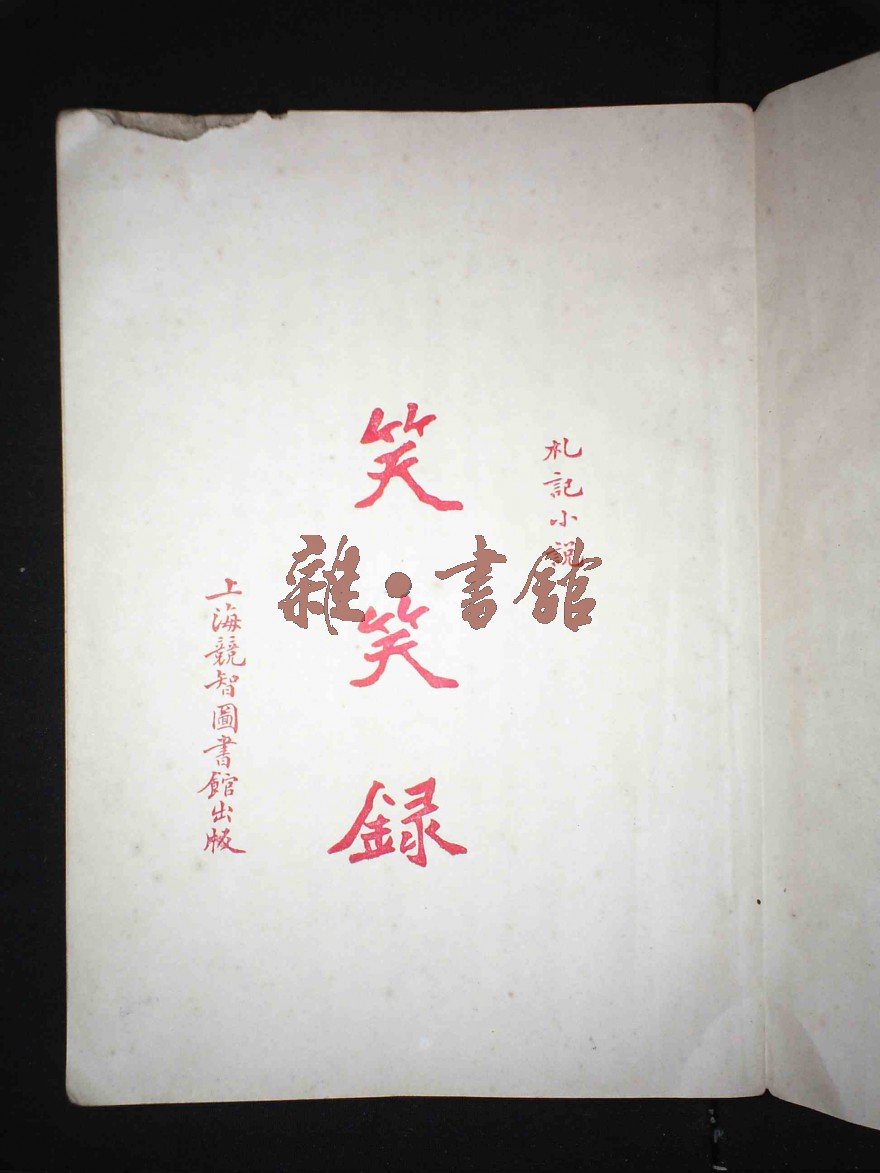 札記小説
笑笑録
上海競智圖書館出版
雜·書館